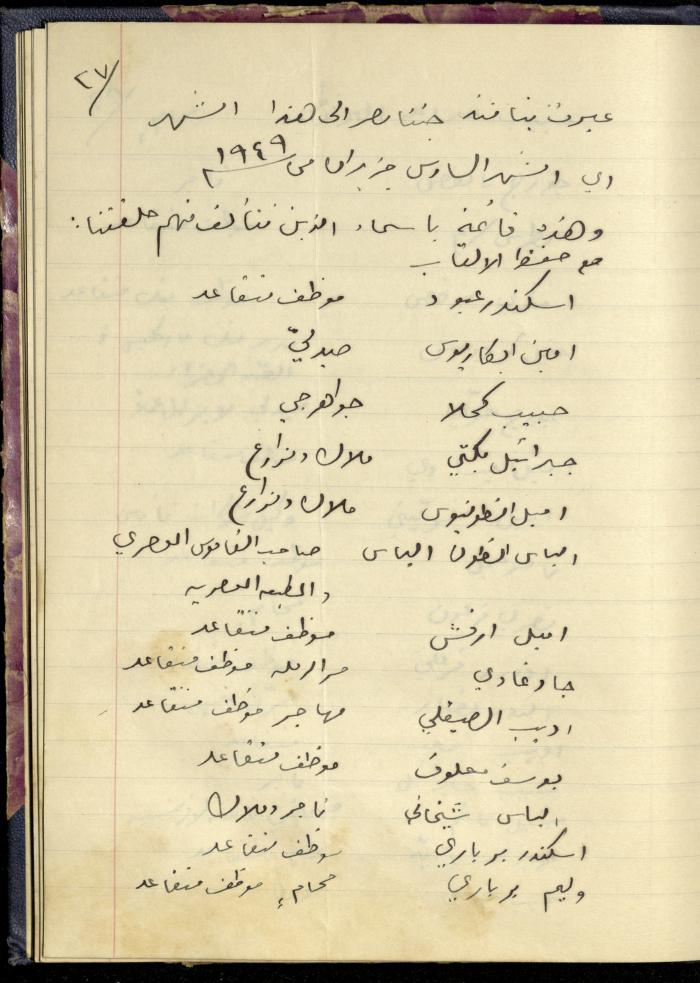 ٢٧/
عبرت بنا منذ جئنا مصر الى هذا الشهر
اي الشهر السادس حزيران من ١٩٤٩
وهذه قائمة باسماء الذين تتألف منهم حلقتنا :
مع حفظ الالقاب
اسكندر عبود موظف متقاعد
امين ابكاريوس صيدليّ
حبيب كحلا جواهرجي
جبرائيل بكتي ملاك ومزارع
اميل انطونيوس ملاك ومزارع
الياس انطون الياس صاحب القاموس العصري
والمطبعه العصريه
اميل ارقش موظف متقاعد
جاد غادي من الرمله موظف متقاعد
اديب الصيقلي مهاجر موظف متقاعد
يوسف معلوف موظف متقاعد
الياس شيخاني تاجر وملاك
اسكندر بربري موظف متقاعد
وليم بربري محامٍ موظف متقاعد